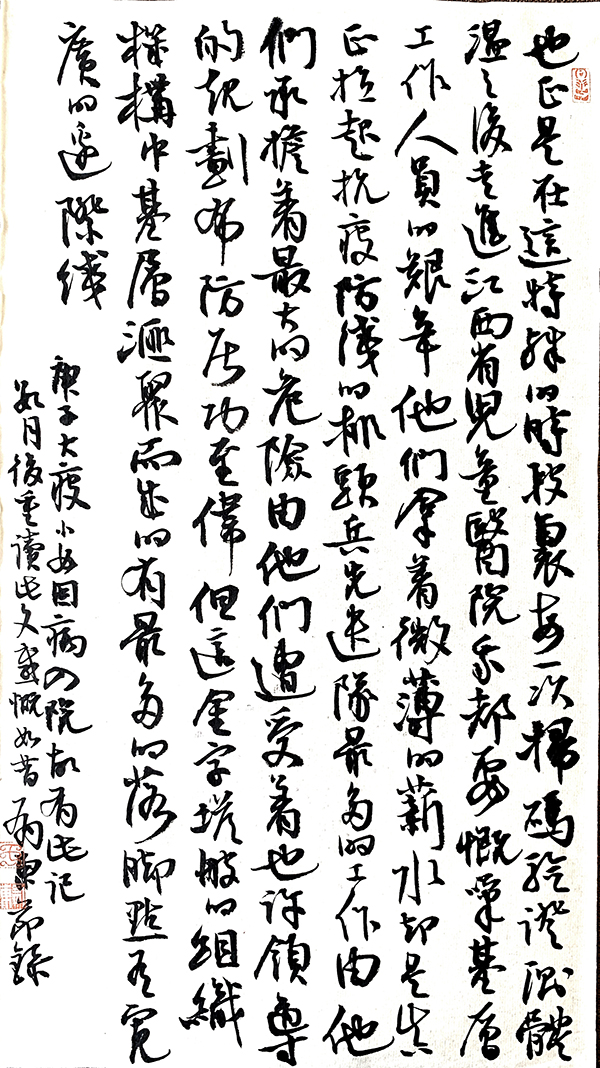 也正是在這特殊的時段裏每一次掃碼驗證測體
温之後走進江西省兒童醫院我都要慨嘆基層
工作人員的艱辛他們拿着微薄的薪水却是真
正拉起抗疫防綫的排頭兵先進隊最多的工作由他
們承擔着最大的危險由他們遭受着也許領導
的規劃布防居功至偉但這金字塔般的組織
構中基層滙聚而成的有最多的落脚點有寬
廣的邊際綫
庚子大疫小女因病入院故有此記
數月後重讀此文感慨如昔 節錄